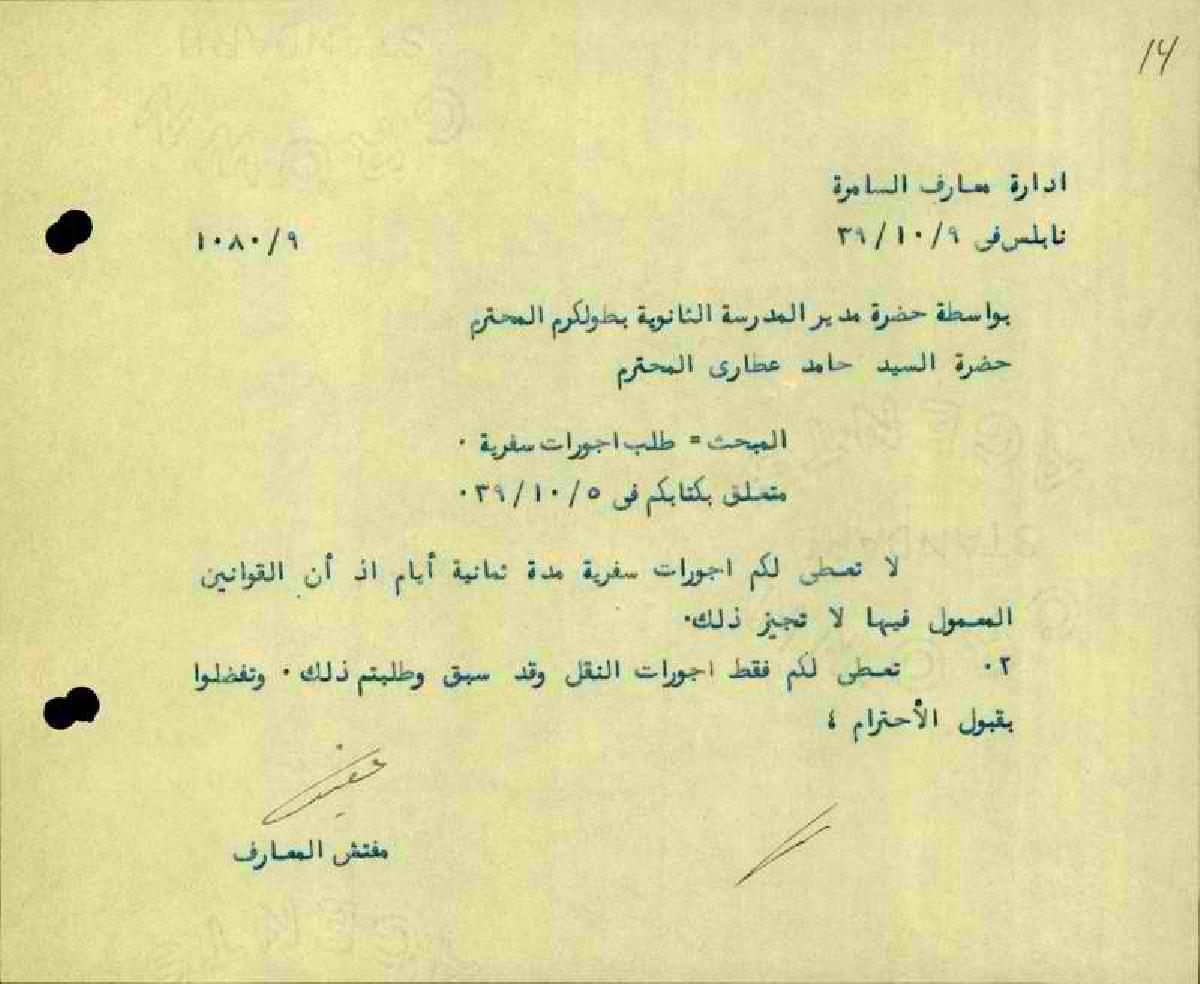 14
ادارة معارف السامرة
نابلس فى ٩/١٠/٣٩
١٠٨٠/٩
بواسطة حضرة مدير المدرسة الثانوية بطولكرم المحترم
حضرة السيد حامد عطارى المحترم
المبحث = طلب اجورات سفرية ٠
متعلق بكتابكم فى ٥/١٠/٣٩٠
لا تعطى لكم اجورات سفرية مدة ثمانية أيام اذ أن القوانين
المعمول فيها لا تجيز ذلك٠
٢٠ تعطى لكم فقط اجورات النقل وقد سبق وطلبتم ذلك٠ وتفضلوا
بقبول الأحترام ؛
مفتش المعارف